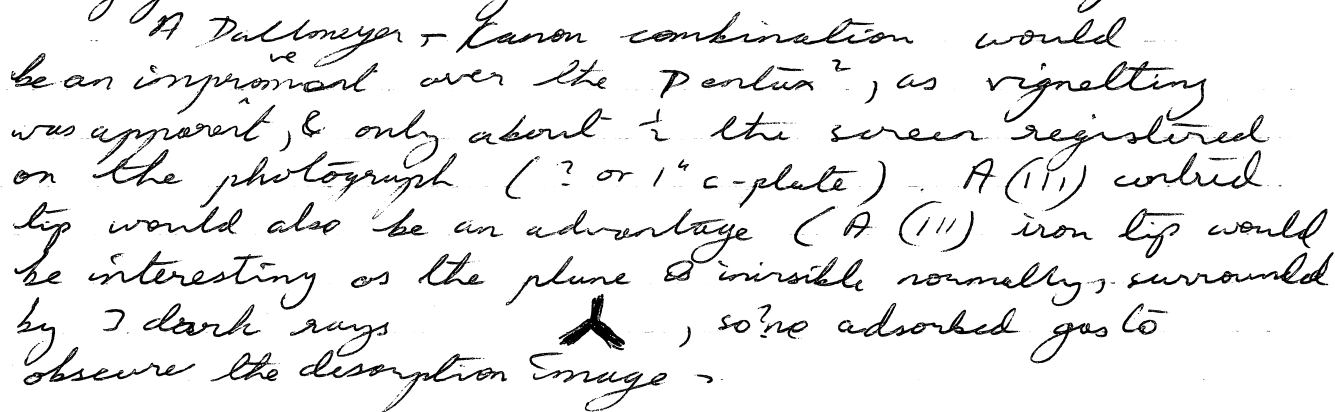 A Dallmeyer - Kanon combination would
be an impromant over the Pentax ?, as vignetting
ve
was apparent, & only about ½ the screen registered
on the photograph (? or 1" c-plate). A (111) centred
tip would also be an advantage (A (111) iron tip would
be interesting as the plane is invisible normally, surrounded
by 3 dark rays , so ? no adsorbed gas to
obscure the desorption image -